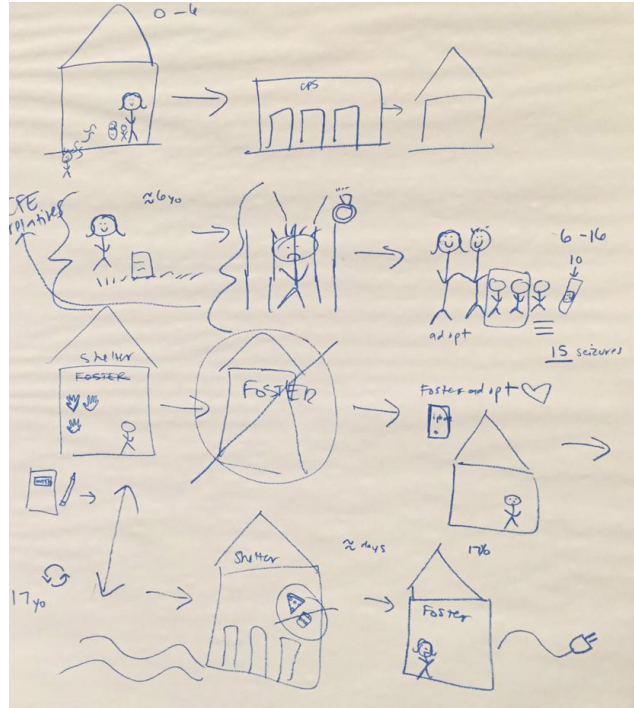 0-6
CPS
relatives
≈6yo
6-16
10
adopt
15 seizures
Shelter
FOSTER
FOSTER
Foster adopt
Shelter
≈ days
17yo
Foster